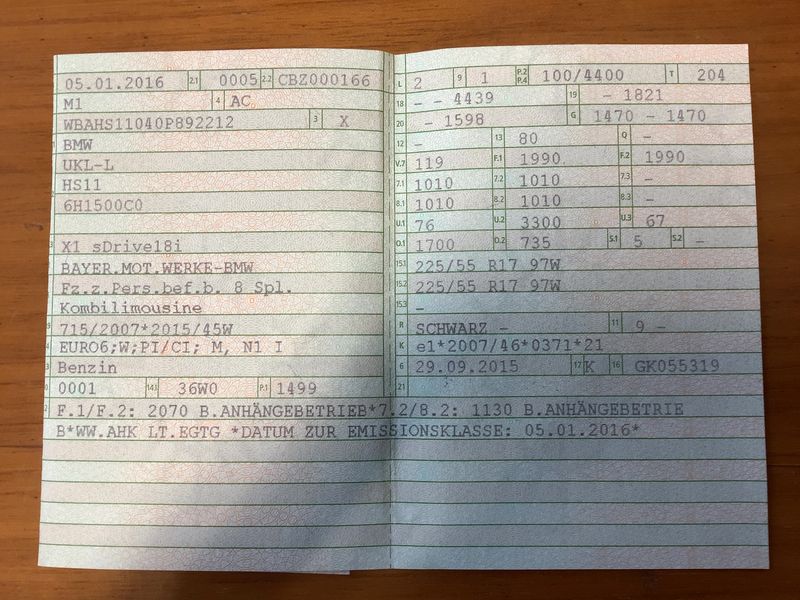 05.01.2016 2.1 0005 2.2 CBZ000166
M1 4 AC
WBAHS11040P892212 3 X
BMW
UKL-L
HS11
6H1500C0
X1 sDrive18i
BAYER.MOT.WERKE-BMW
Fz.z.Pers.bef.b. 8 Spl.
Kombilimousine
715/2007*2015/45W
EURO6;W;PI/CI; M, N1 I
Benzin
0001 14.1 36W0 P.1 1499
L 2 9 1 P.2 P.4 100/4400 T 204
18 - - 4439 19 - 1821
20 - 1598 G 1470 - 1470
12 - 13 80 Q -
V.7 119 F.1 1990 F.2 1990
7.1 1010 7.2 1010 7.3 -
8.1 1010 8.2 1010 8.3 -
U.1 76 U.2 3300 U.3 67
O.1 1700 O.2 735 S.1 5 S.2 -
15.1 225/55 R17 97W
15.2 225/55 R17 97W
15.3 -
R SCHWARZ - 11 9 -
K e1*2007/46*0371*21
6 29.09.2015 17 K 16 GK055319
21
F.1/F.2: 2070 B.ANHÄNGEBETRIEB*7.2/8.2: 1130 B.ANHÄNGEBETRIE
B*WW.AHK LT.EGTG *DATUM ZUR EMISSIONSKLASSE: 05.01.2016*